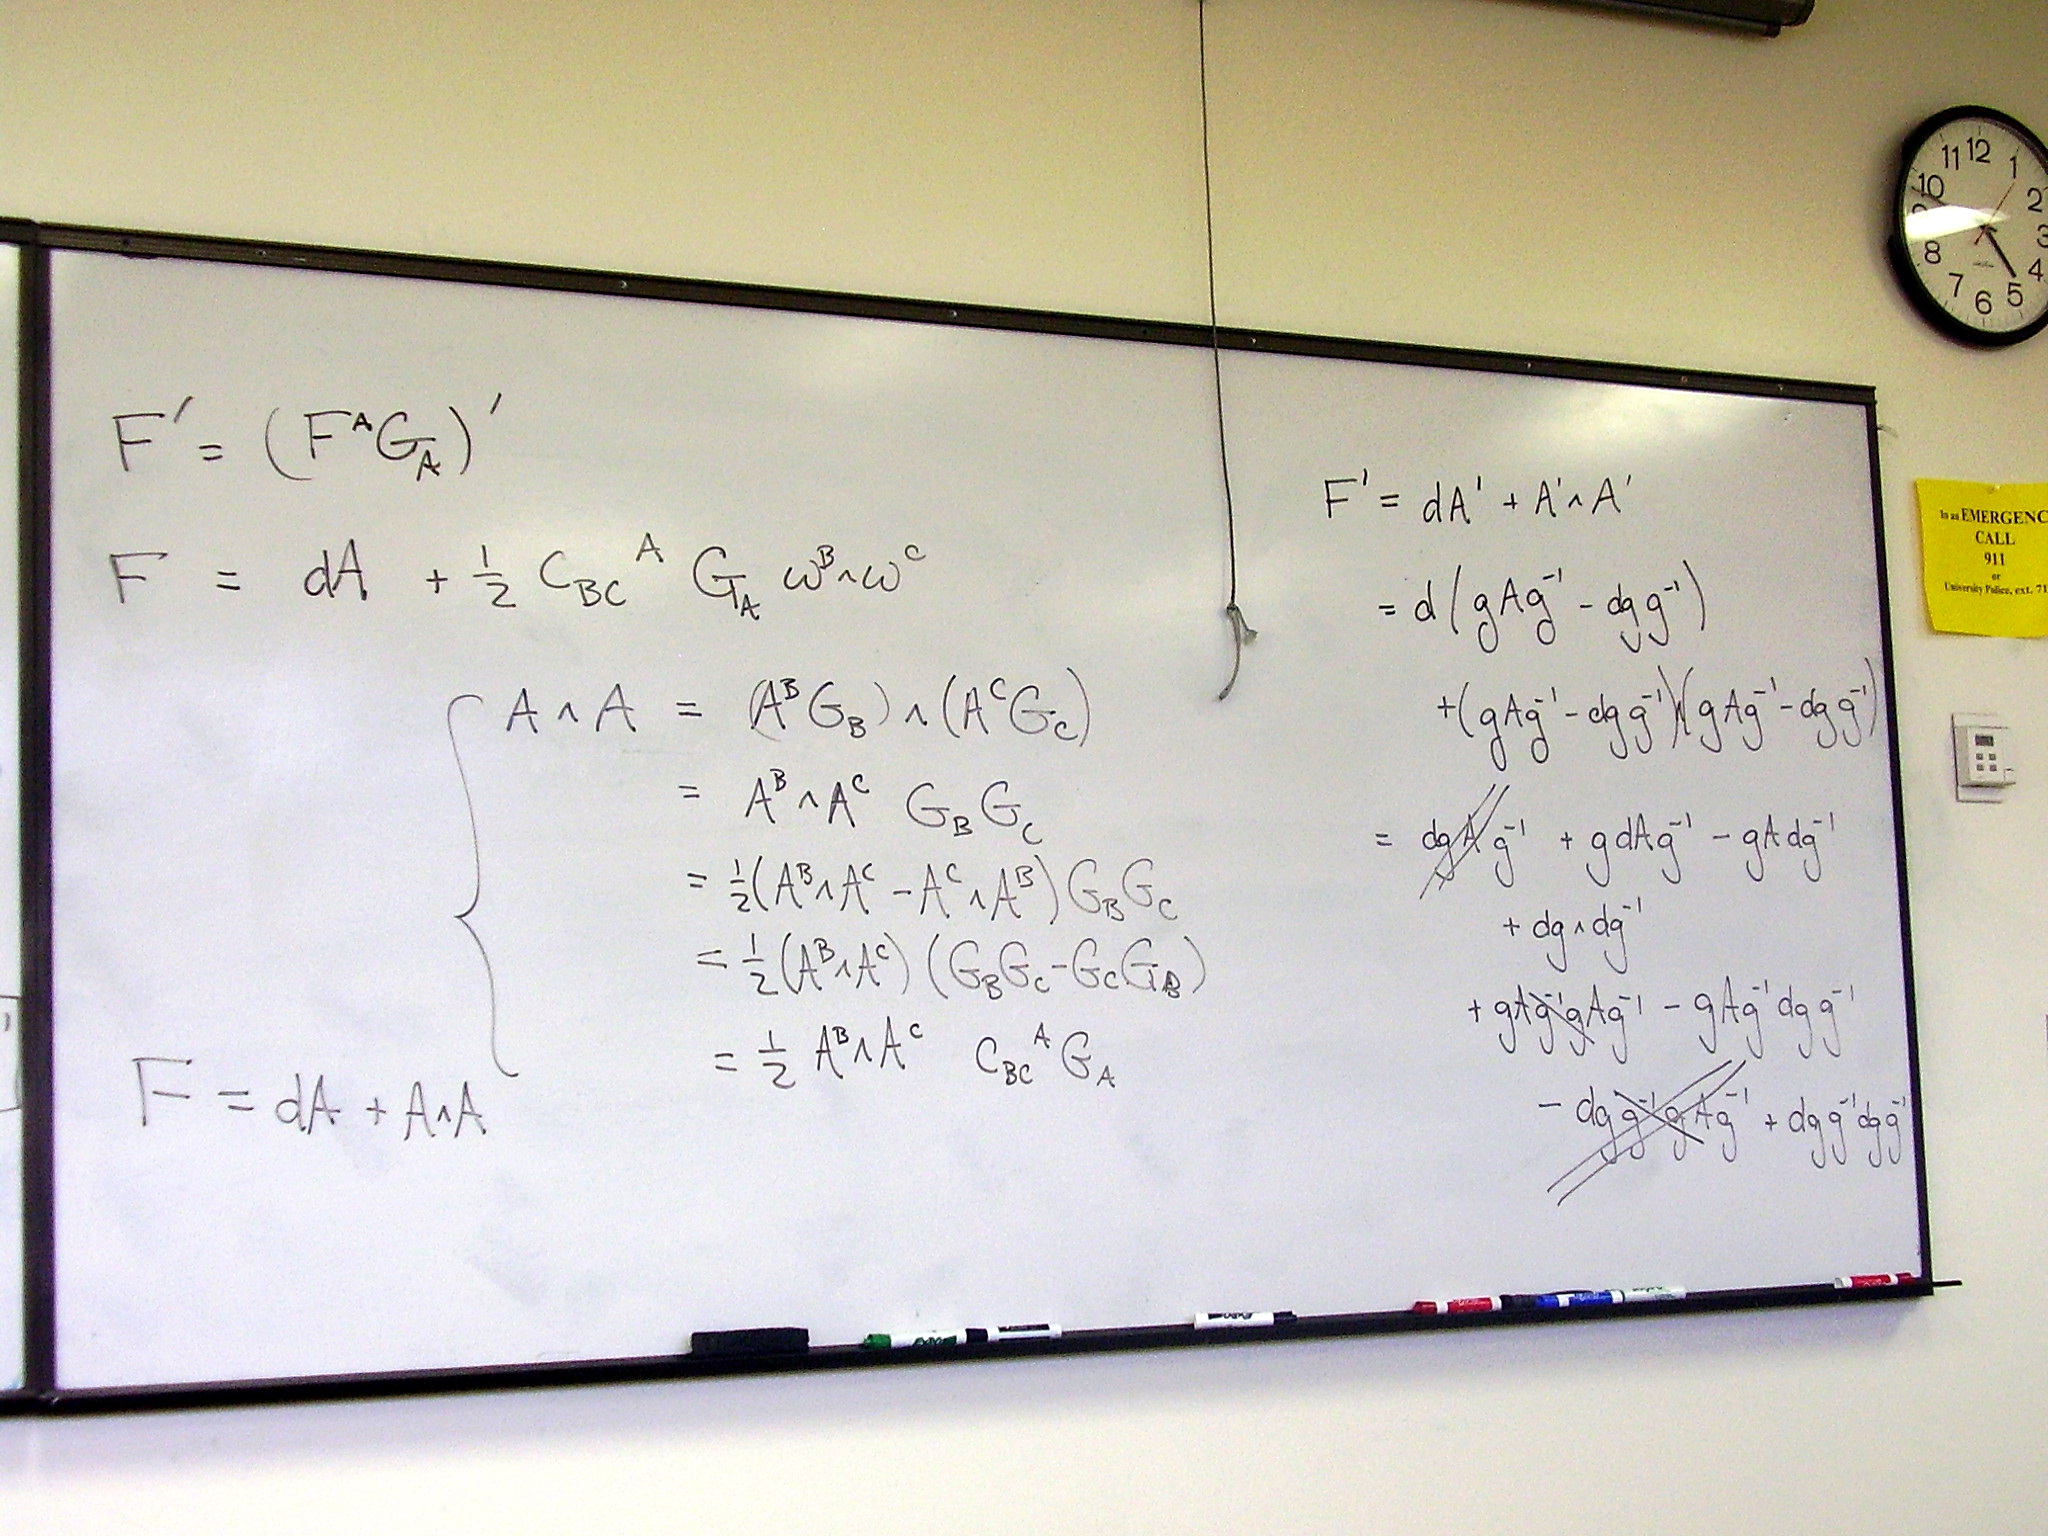 F' = (F^A G_A)'
F = dA + 1/2 C_BC^A G_A ω^B ∧ ω^C
A ∧ A = (A^B G_B) ∧ (A^C G_C)
= A^B ∧ A^C G_B G_C
= 1/2 (A^B ∧ A^C - A^C ∧ A^B) G_B G_C
= 1/2 (A^B ∧ A^C) (G_B G_C - G_C G_B)
= 1/2 A^B ∧ A^C C_BC^A G_A
F = dA + A ∧ A
F' = dA' + A' ∧ A'
= d(gAg⁻¹ - dg g⁻¹)
+ (gAg⁻¹ - dg g⁻¹) ∧ (gAg⁻¹ - dg g⁻¹)
= dg A g⁻¹ + g dA g⁻¹ - gA dg⁻¹
+ dg ∧ dg⁻¹
+ gAg⁻¹gAg⁻¹ - gAg⁻¹ dg g⁻¹
- dg g⁻¹ gAg⁻¹ + dg g⁻¹ dg g⁻¹
11 12 1
10 2
3
8 4
7 6 5
In an EMERGENC
CALL
911
or
University Police, ext. 71